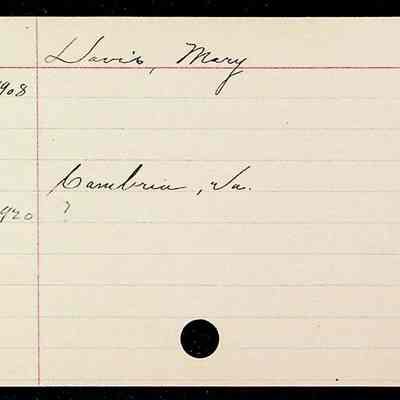 Davis, Mary
908
Cambria, Va.
920
?